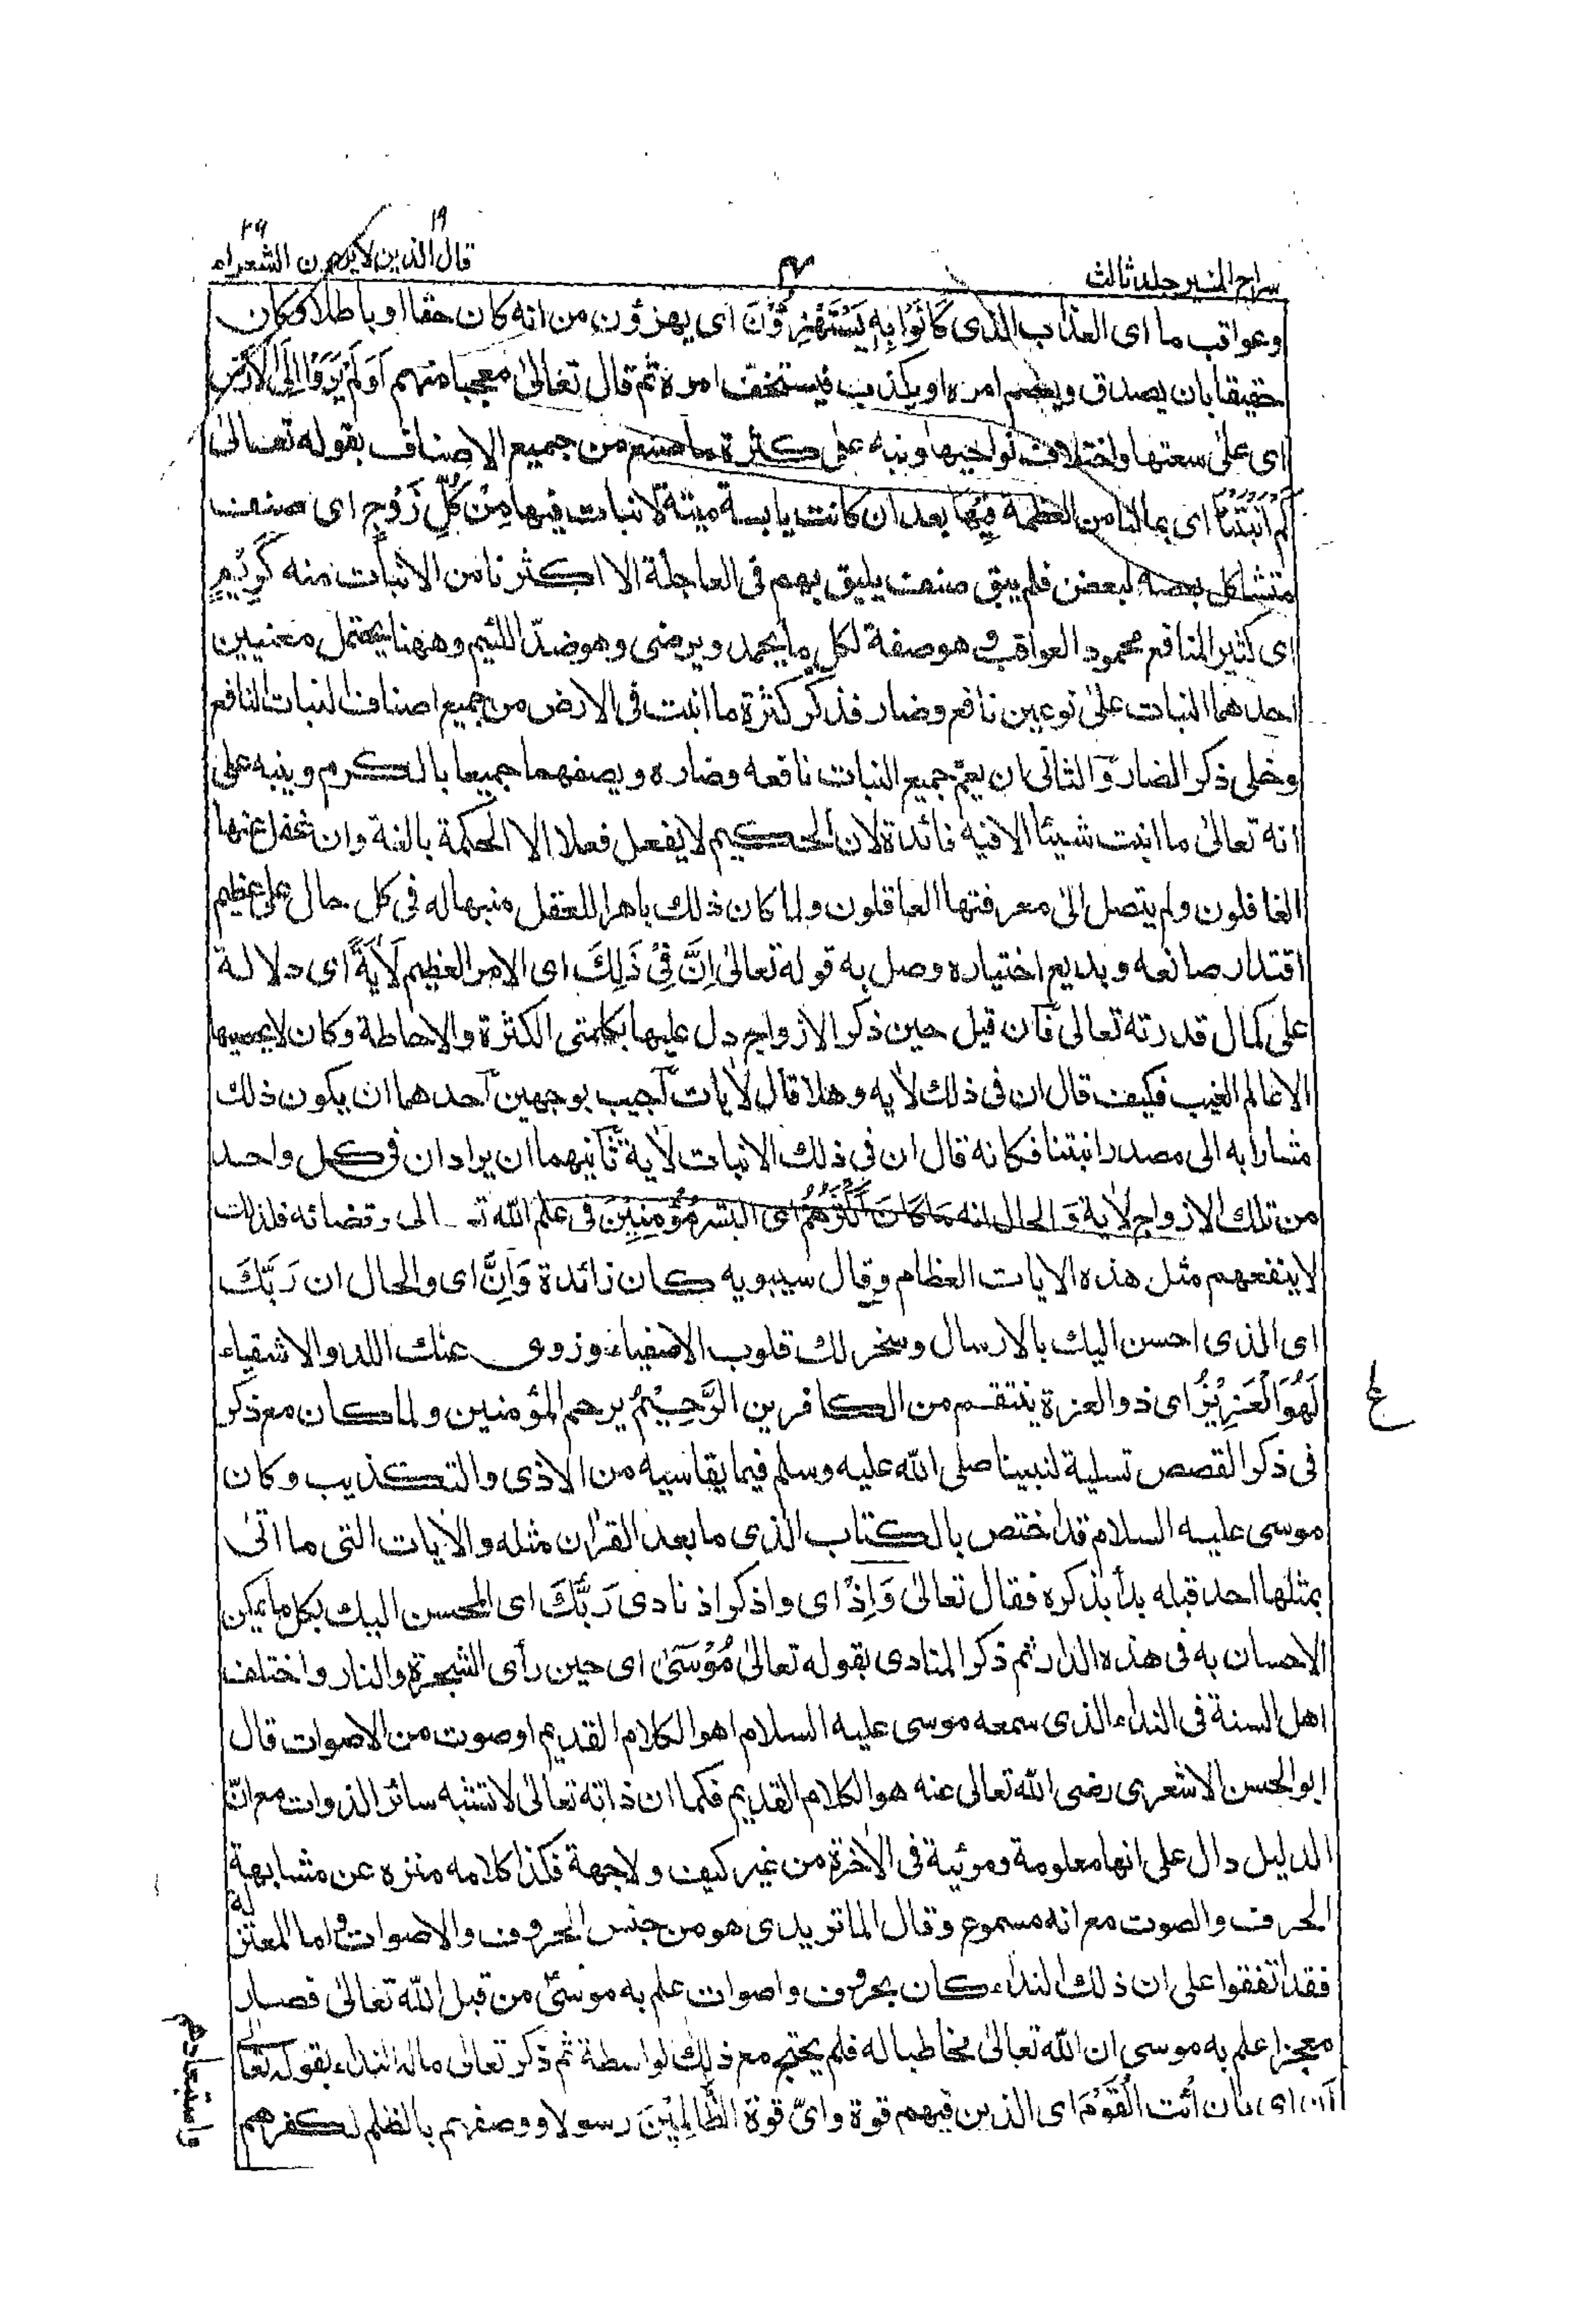 سراج المنير جلد ثالث
٤
قال الذين لا يرجون ١٩ الشعراء ٢٦
وعواقب ما اى العذاب الذى كَانُوْا بِهٖ يَسْتَهْزِءُوْنَ اى يهزؤن من انه كان حقا او باطلا وكان
حقيقا بان يصدق ويعظم امره او يكذب فيستخف امره ثم قال تعالىٰ معجبا منهم اَوَلَمْ يَرَوْا اِلَى الْاَرْضِ
اى علىٰ سعتها واختلاف نواحيها ونبه على كثرة ما صنع من جميع الاصناف بقوله تعالىٰ
كَمْ اَنْبَتْنَا اى بما لنا من العظمة فِيْهَا بعد ان كانت يابسة ميتة لا نبات فيها مِنْ كُلِّ زَوْجٍ اى صنف
متشاكل بعضه لبعض فلم يبق صنف يليق بهم فى العاجلة الا اكثرنا من الانبات منه كَرِيْمٍ
اى كثير المنافع محمود العواقب وهو صفة لكل ما يحمد ويرضى وهو ضدّ اللئيم وههنا يحتمل معنيين
احدهما النبات علىٰ نوعين نافع وضار فذكر كثرة ما انبت فى الارض من جميع اصناف النبات النافع
وخلى ذكر الضار والثانى ان يعم جميع النبات نافعه وضاره ويصفهما جميعا بالكرم وينبه على
انه تعالىٰ ما انبت شيئا الا فيه فائدة لان الحكيم لا يفعل فعلا الا لحكمة بالغة وان غفل عنها
الغافلون ولم يتصل الىٰ معرفتها العاقلون ولما كان ذلك باهرا للعقل منبها له فى كل حال على عظيم
اقتدار صانعه وبديع اختياره وصل به قوله تعالىٰ اِنَّ فِىْ ذٰلِكَ اى الامر العظيم لَاٰيَةً اى دلالة
على كمال قدرته تعالىٰ فان قيل حين ذكر الازواج دل عليها بكلمتى الكثرة والاحاطة وكان لا يحصيها
الا عالم الغيب فكيف قال ان فى ذلك لاٰيه وهلا قال لاٰيات اجيب بوجهين احدهما ان يكون ذلك
مشارا به الى مصدر انبتنا فكانه قال ان فى ذلك الانبات لاٰية ثانيهما ان يراد ان فى كل واحد
من تلك الازواج لاٰية وَ الحال انه مَا كَانَ اَكْثَرُهُمْ اى البشر مُّؤْمِنِيْنَ فى علم اللّٰه تـ الى وقضائه فلذلك
لا ينفعهم مثل هذه الاٰيات العظام وقال سيبويه كان زائدة وَاِنَّ اى والحال ان رَبَّكَ
اى الذى احسن اليك بالارسال وسخر لك قلوب الاصفياء وزوى عنك اللد والاشقياء
لَهُوَ الْعَزِيْزُ اى ذو العزة ينتقم من الكافرين الرَّحِيْمُ يرحم المؤمنين ولما كان مع ذكر
ع
فى ذكر القصص تسلية لنبينا صلى اللّٰه عليه وسلم فيما يقاسيه من الاذى والتكذيب وكان
موسى عليه السلام قد اختص بالكتاب الذى ما بعد القراٰن مثله والاٰيات التى ما اتىٰ
بمثلها احد قبله بدأ بذكره فقال تعالىٰ وَاِذْ اى واذكر اذ نادى رَبُّكَ اى المحسن اليك بكل ما يمكن
الاحسان به فى هذه الدار ثم ذكر المنادى بقوله تعالىٰ مُوْسٰىٓ اى حين رأى الشجرة والنار واختلف
اهل السنة فى النداء الذى سمعه موسى عليه السلام اهو الكلام القديم او صوت من الاصوات قال
ابو الحسن الاشعرى رضى اللّٰه تعالى عنه هو الكلام القديم فكما ان ذاته تعالىٰ لا تشبه سائر الذوات مع انّ
الدليل دال على انها معلومة ومرئية فى الاٰخرة من غير كيف ولا جهة فكذا كلامه منزه عن مشابهة
الحرف والصوت مع انه مسموع وقال الماتريدى هو من جنس الحروف والاصوات واما المعتزلة
فقد اتفقوا على ان ذلك النداء كان بحروف واصوات علم به موسىٰ من قبل اللّٰه تعالىٰ فصار
معجزا علم به موسى ان اللّٰه تعالىٰ مخاطبا له فلم يحتج مع ذلك لواسطة ثم ذكر تعالى ماله النداء بقوله تعالى
اَنِ اى بان ائْتِ الْقَوْمَ اى الذين فيهم قوة واىّ قوة الظّٰلِمِيْنَ رسولا ووصفهم بالظلم لكفرهم
واستعبادهم